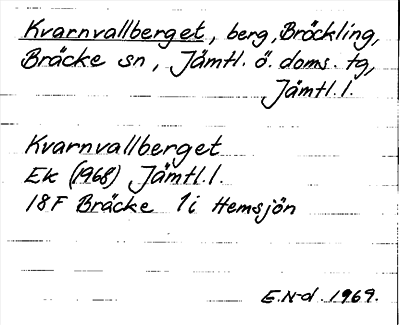 Kvarnvallberget, berg, Bröckling,
Bräcke sn, Jämtl. ö. doms. tg,
Jämtl. l.
Kvarnvallberget
Ek (1968) Jämtl. l.
18F Bräcke 1i Hemsjön
E.N-d. 1969.